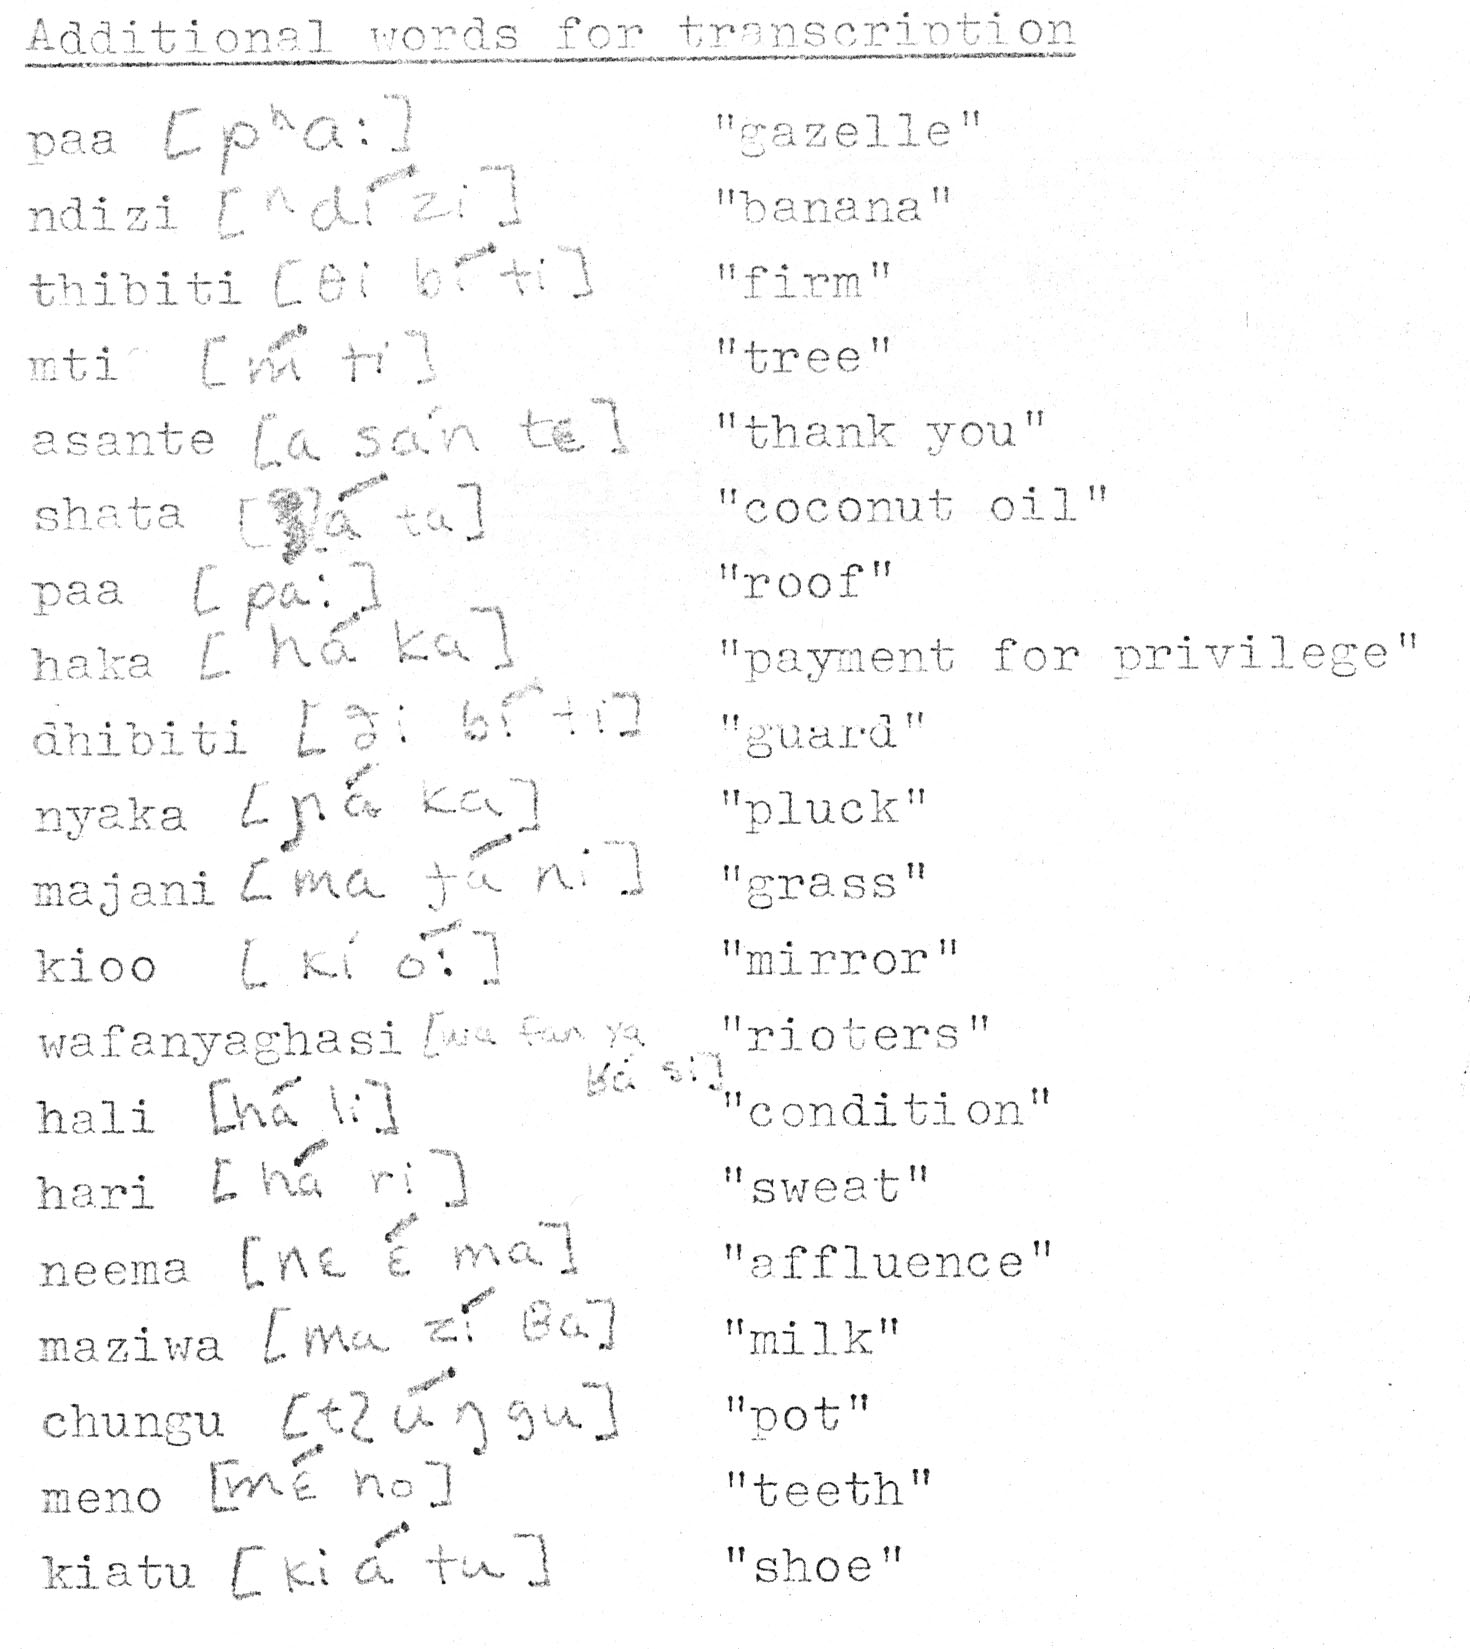 Additional words for transcription
paa [pʰa:] "gazelle"
ndizi [ⁿdí zi] "banana"
thibiti [θi bí ti] "firm"
mti [ḿ ti] "tree"
asante [a sán tɛ] "thank you"
shata "coconut oil"
paa [pa:] "roof"
haka [há ka] "payment for privilege"
dhibiti [ʒi bí ti] "guard"
nyaka [ɲá ka] "pluck"
majani [ma ɟá ni] "grass"
kioo [kí ó:] "mirror"
wafanyaghasi [wa fan ya "rioters"
ʁá si]
hali [há li] "condition"
hari [há ri] "sweat"
neema [nɛ ɛ́ ma] "affluence"
maziwa [ma zí βa] "milk"
chungu [tʃúŋ gu] "pot"
meno [mɛ́ no] "teeth"
kiatu [ki á tu] "shoe"